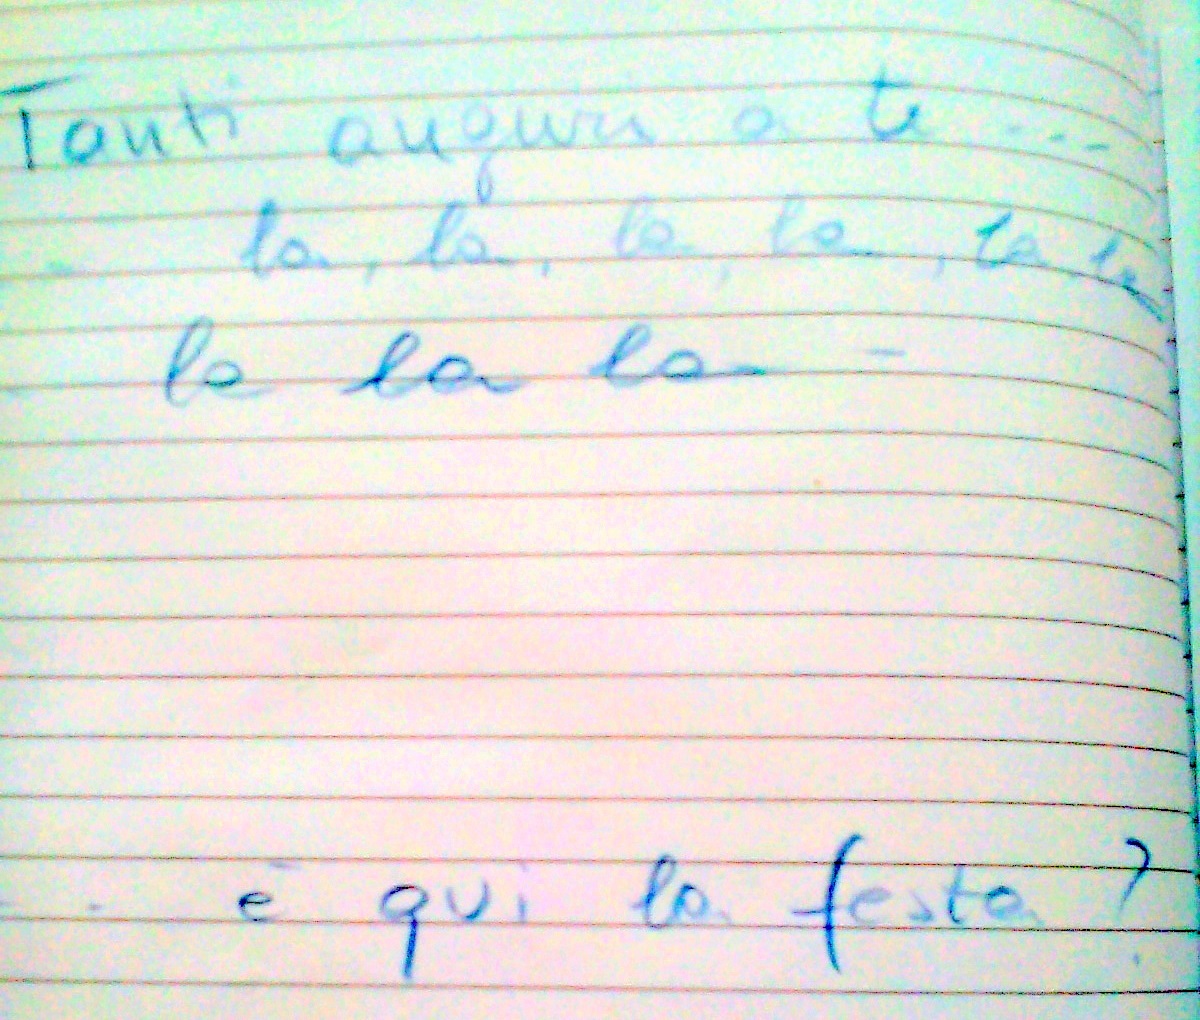 Tanti auguri a te ...
- la, la, la, la, la la
la la la -
- - è qui la festa ?